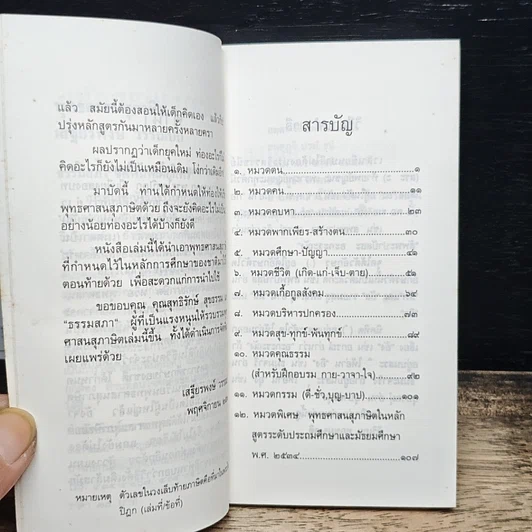 แล้ว สมัยนี้ต้องสอนให้เด็กคิดเอง แล้วก็
ปรุงหลักสูตรกันมาหลายครั้งหลายครา
ผลปรากฏว่าเด็กยุคใหม่ ท่องอะไรก็
คิดอะไรก็ยังไม่เป็นเหมือนเดิม โง่กว่าเดิม
มาบัดนี้ ท่านได้กำหนดให้ท่องให้จำ
พุทธศาสนสุภาษิตด้วย ถึงจะยังคิดอะไรไม่
อย่างน้อยท่องอะไรได้บ้างก็ยังดี
หนังสือเล่มนี้ได้นำเอาพุทธศาสน
ที่กำหนดไว้ในหลักการศึกษาของชาติ
ตอนท้ายด้วย เพื่อสะดวกแก่การนำไปใช้
ขอขอบคุณ คุณสุทธิรักษ์ สุขธรรม
"ธรรมสภา" ผู้ที่เป็นแรงหนุนให้รวบรวม
ศาสนสุภาษิตเล่มนี้ขึ้น ทั้งได้ดำเนินการจัด
เผยแพร่ด้วย
เสฐียรพงษ์
พฤศจิกายน
หมายเหตุ ตัวเลขในวงเล็บท้ายภาษิตคือที่มา
ปิฎก (เล่มที่/ข้อที่)
สารบัญ
๑. หมวดตน ๑
๒. หมวดคน ๑๑
๓. หมวดคบหา ๒๓
๔. หมวดพากเพียร-สร้างตน ๓๐
๕. หมวดศึกษา-ปัญญา ๔๑
๖. หมวดชีวิต (เกิด-แก่-เจ็บ-ตาย) ๕๑
๗. หมวดเกื้อกูลสังคม ๖๔
๘. หมวดบริหารปกครอง ๗๓
๙. หมวดสุข-ทุกข์-พ้นทุกข์ ๘๙
๑๐. หมวดคุณธรรม
(สำหรับฝึกอบรม กาย-วาจา-ใจ) ๙๒
๑๑. หมวดกรรม (ดี-ชั่ว,บุญ-บาป) ๑๐๑
๑๒. หมวดพิเศษ พุทธศาสนสุภาษิตในหลัก
สูตรระดับประถมศึกษาและมัธยมศึกษา
พ.ศ. ๒๕๓๔ ๑๐๗